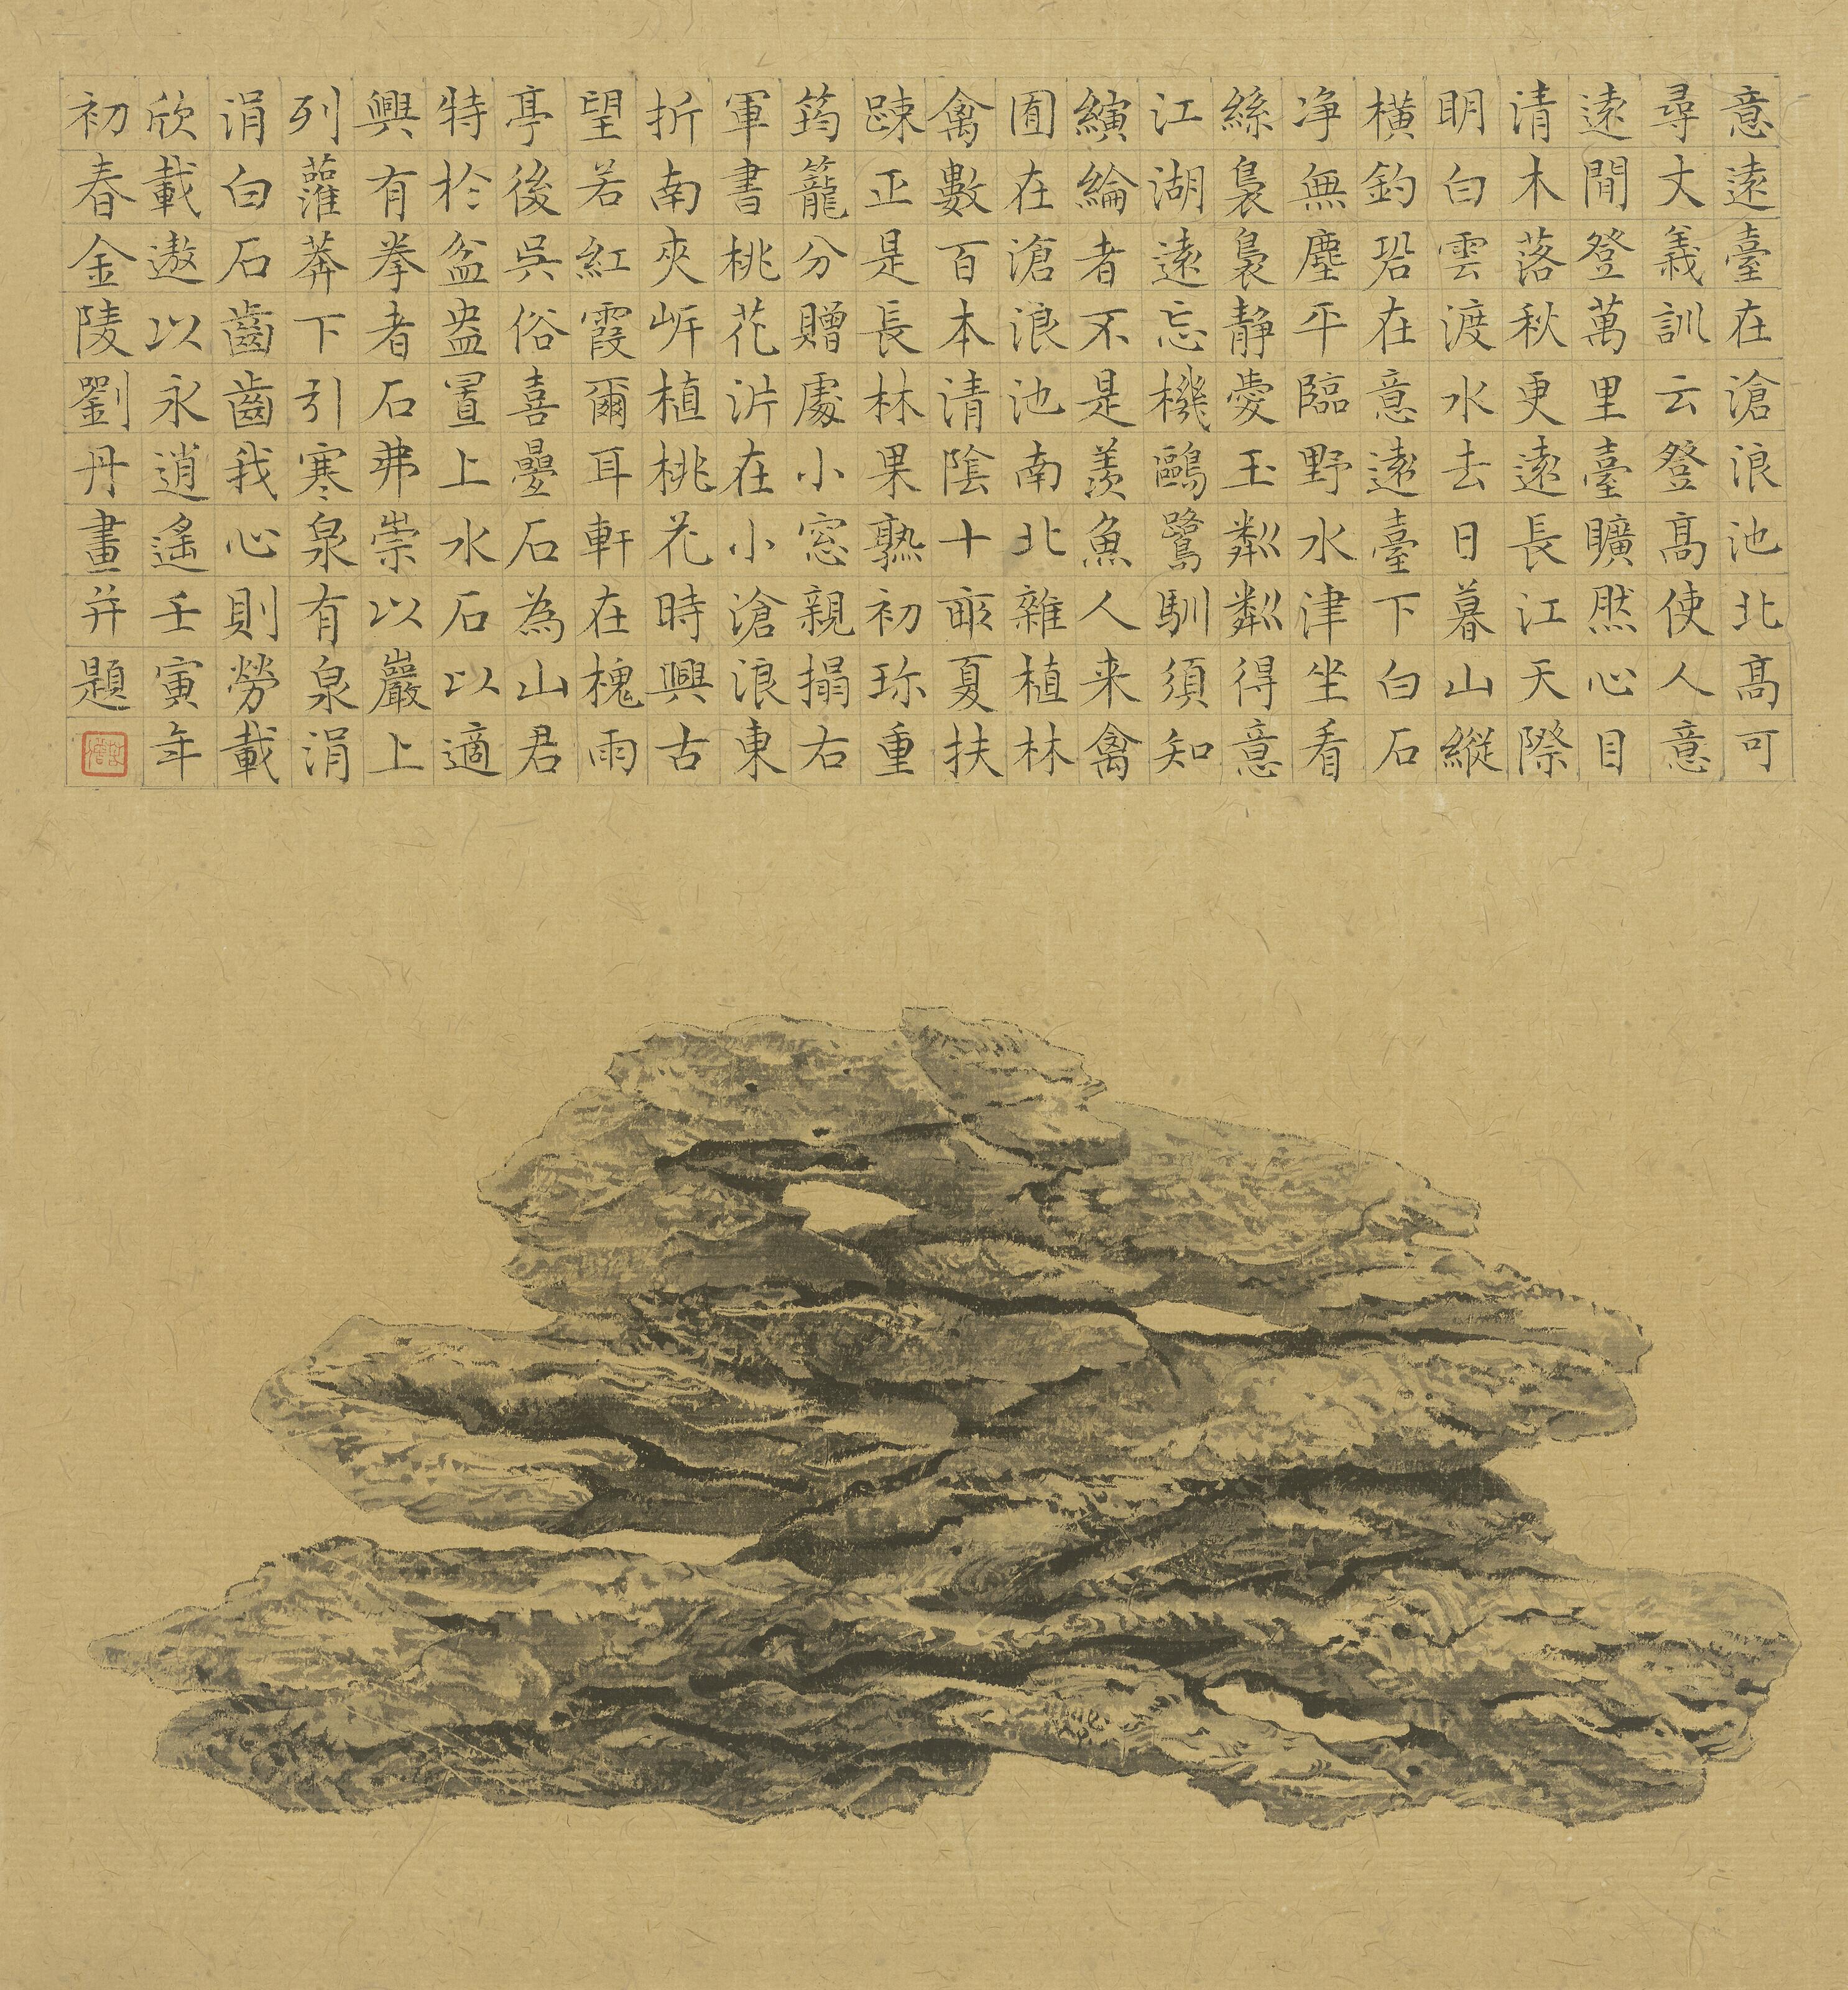 意遠臺在滄浪池北高可
尋丈義訓云登高使人意
遠閒登萬里臺曠然心目
清木落秋更遠長江天際
明白雲渡水去日暮山縱
橫釣䂬在意遠臺下白石
净無塵平臨野水津坐看
絲裊裊静愛玉粼粼得意
江湖遠忘機鷗鷺馴須知
縯綸者不是羨魚人来禽
囿在滄浪池南北雜植林
禽數百本清陰十畝夏扶
踈正是長林果熟初珎重
筠籠分贈處小窓親搨右
軍書桃花沜在小滄浪東
折南夾岸植桃花時興古
望若紅霞爾耳軒在槐雨
亭後吳俗喜疊石為山君
特於盆盎置上水石以適
興有拳者石弗崇以巖上
列灌莽下引寒泉有泉涓
涓白石齒齒我心則勞載
欣載遨以永逍遙壬寅年
初春金陵劉丹畫并題